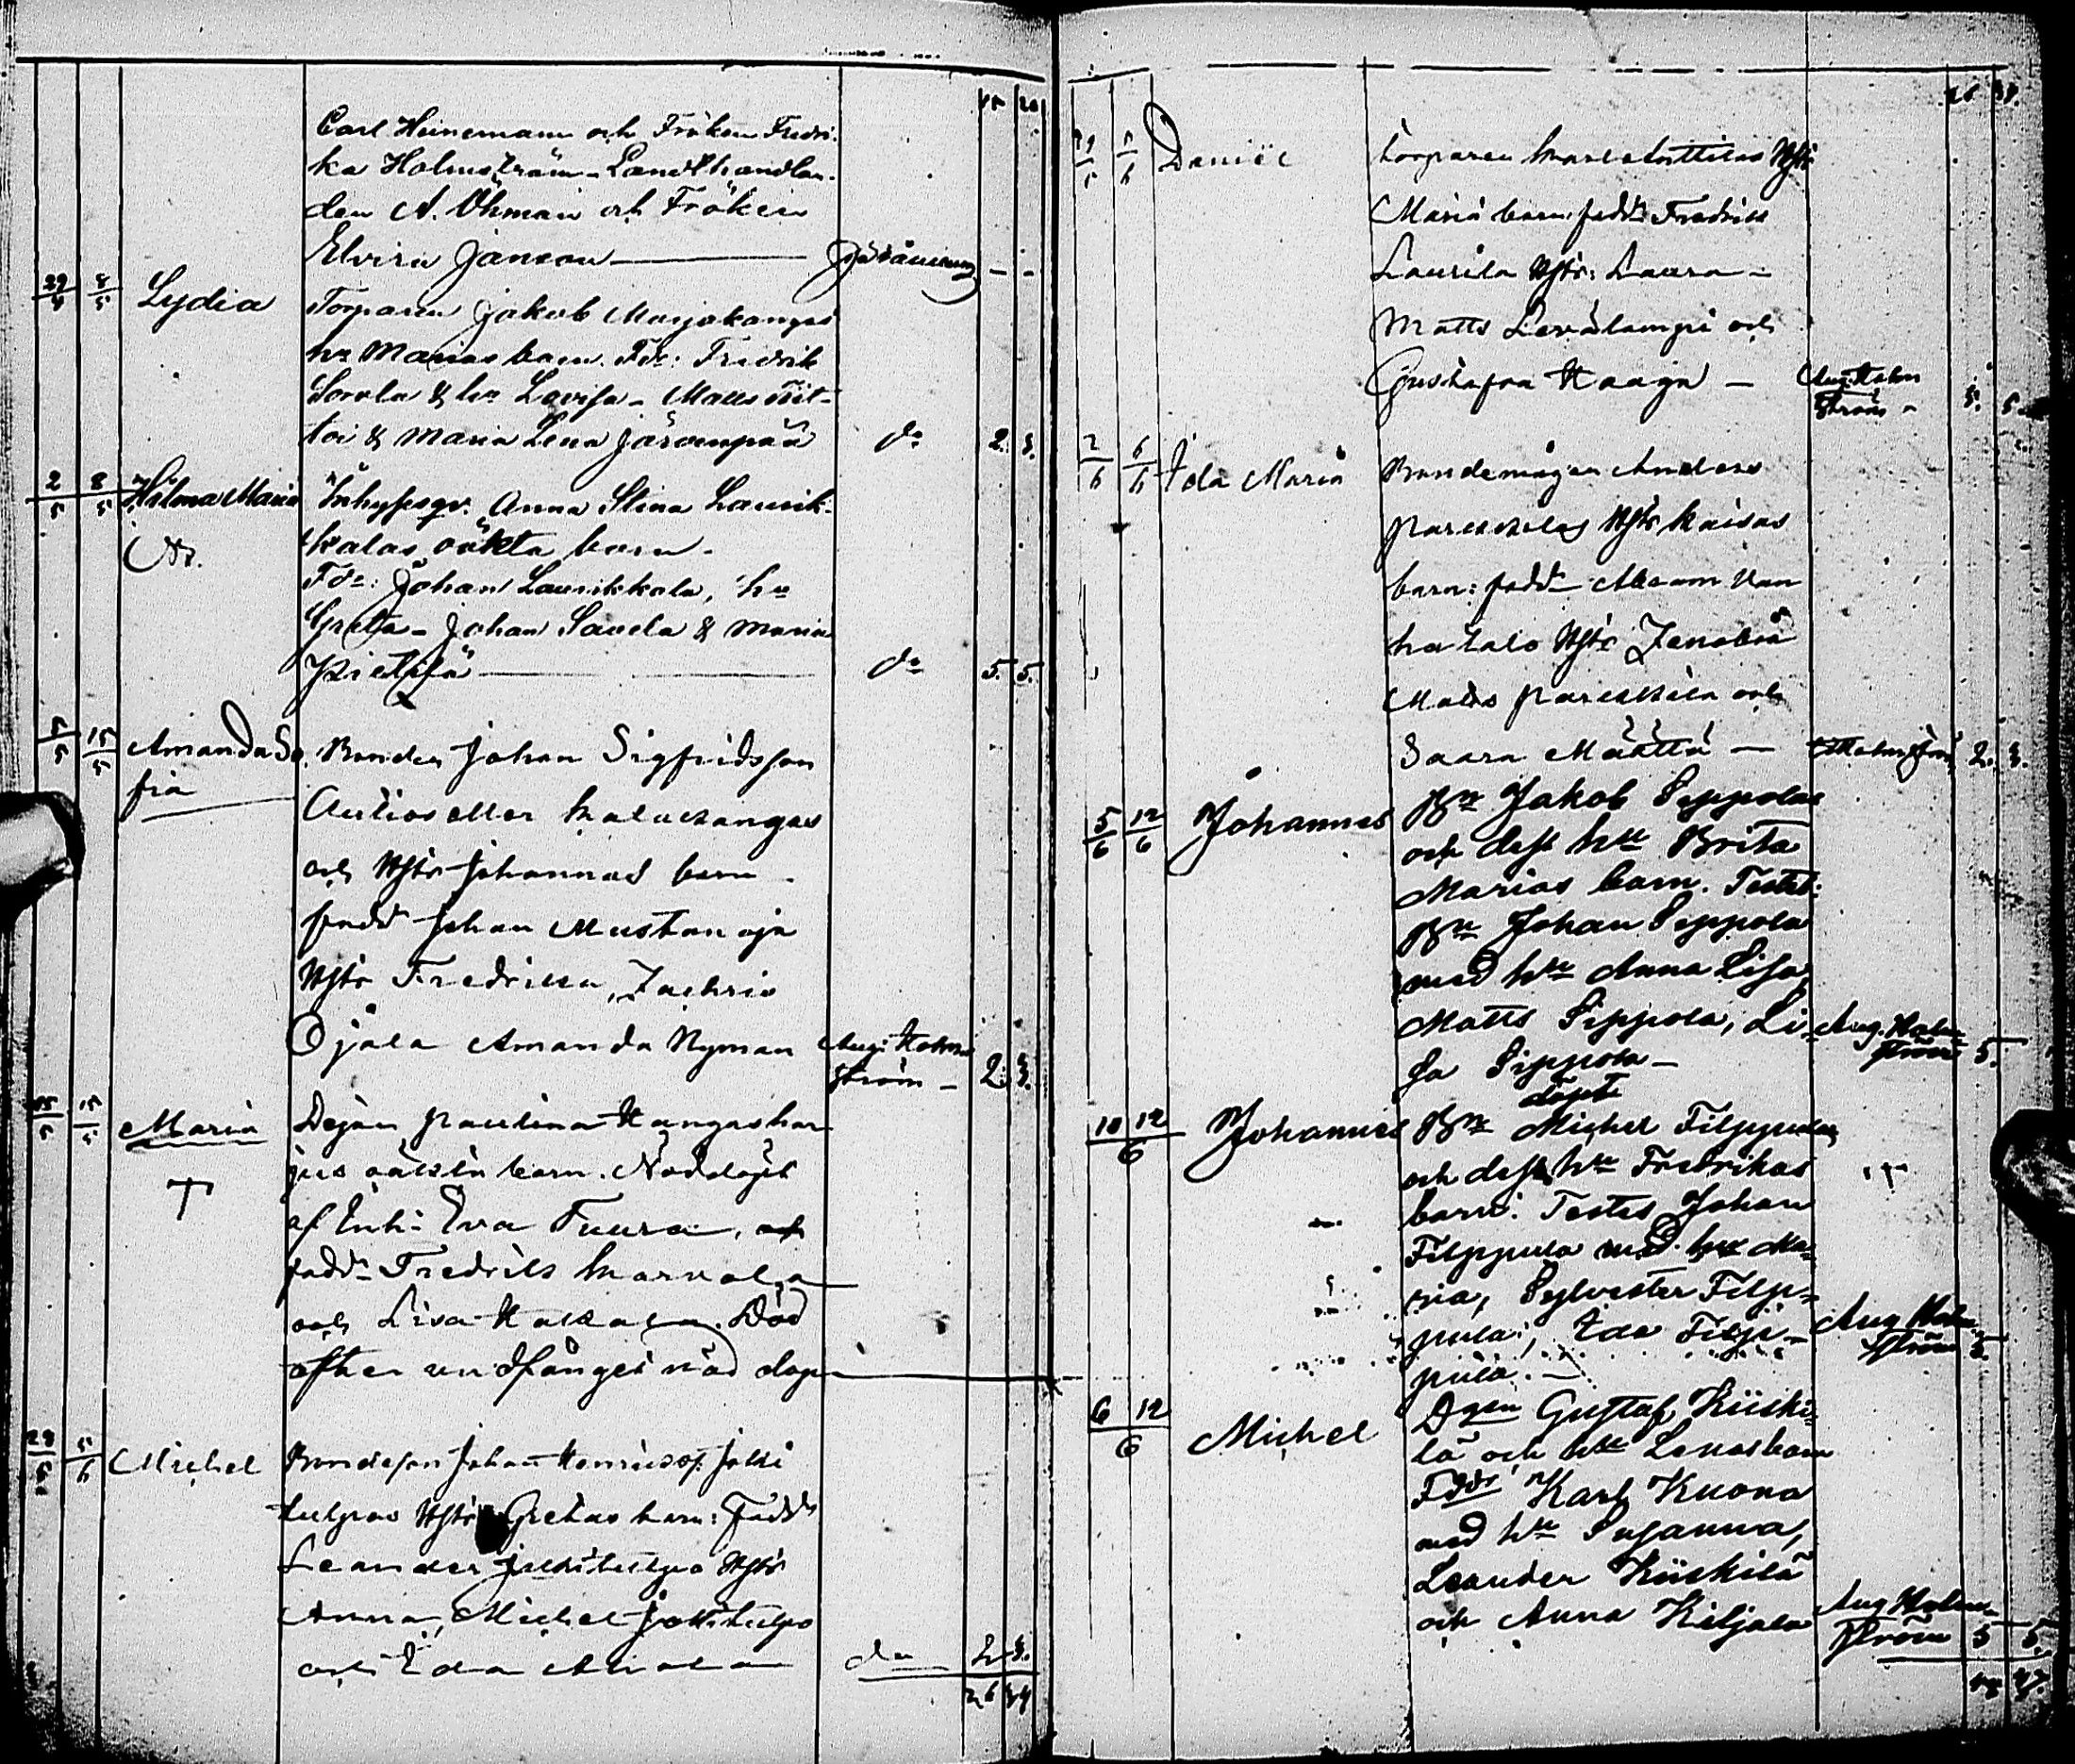 15 20
Carl Heinemann och Fröken Fredri-
ka Holmström - Landthandlan-
den A. Öhman och Fröken
Elvira Janson
29/4 8/5 Lydia Torparen Jakob Marjakangas
hu Marias barn. Fdr: Fredrik
Sorvla & hu Lovisa - Matts
& Maria Lena Järvenpää do 2. 3.
2/5 8/5 Hilma Maria Inhysesqv. Anna Stina Laurik-
kalas oäkta barn.
Fdr: Johan Laurikkala, hu
Greta - Johan Savela & Maria
Pietilä do 5. 5.
5/5 15/5 Amanda So Bonden Johan Sigfridsson
fia
Autios eller
och Hstr Johannas barn
fadd Johan Mustanoja
Hstr Fredrika, Zachris
Ojala Amanda Nyman Aug. Holm
ström - 2. 3.
15/5 15/5 Maria Dejan Paulina Kangashar
jus oäkta barn. Nöddöpt
af Inh: Eva Tuura, och
fadd: Fredrik
och Lisa Död
efter undfånget nöd dop
29/5 5/6 Michel Bondeson Johan Henrikss. Jokki
tulpas Hstr Gretas barn: fadd
Leander Jokkitulpo Hstr
Anna, Michel Jokkitulpo
och do 2 3.
26 34
26 34.
29/5 5/6 Daniel Torparen Hstr
Maria barn: fadd Fredrik
Laurila Hstr: Laura -
Matts Levälampi och
Gustafva Haaga - Aug. Holm
ström - 5. 5.
2/6 6/6 Ida Maria Bondemågen Anders
Parkkilas Hstr Kaisas
barn: fadd Abram Van
hatalo Hstr Zenobia
Matts Parkkila och
Saara Määttä - Holmström 2. 3.
5/6 12/6 Johannes Bn Jakob Sippolas
och dess hu Brita
Marias barn. Testes:
Bn Johan Sippola
med hu Anna Lisa,
Matts Sippola, Li- Aug. Holm-
ström 5.
sa Sippola -
döpt
10 12/6 Johannes Bn Michel Filppulas
och dess hu Fredrikas
barn. Testes Johan
Filppula med hu Ma-
ria, Sylvester Filp-
pula, Ida Filp- Aug Holm-
ström 5.
pula. -
6 12/6 Michel Dgen Gustaf Kiiski-
lä och hu Lenas barn
Fddr Karl Kuona
med hu Susanna,
Leander Kiiskilä
och Anna Kiljala Aug Holm-
ström 5 5.